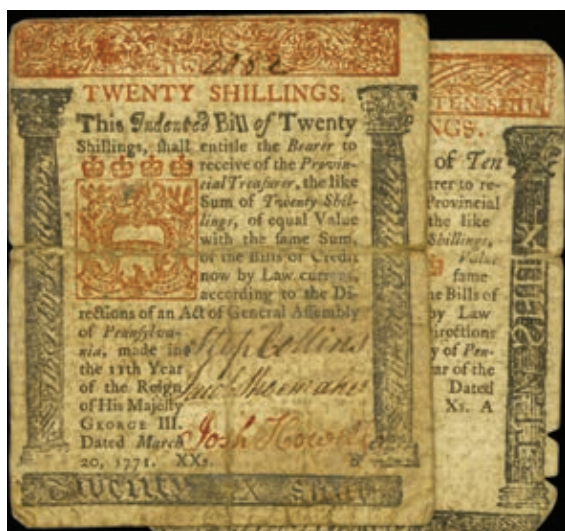 2052
TWENTY SHILLINGS.
This Indented Bill of Twenty
Shillings, shall entitle the Bearer to
receive of the Provin-
cial Treasurer, the like
Sum of Twenty Shil-
lings, of equal Value
with the same Sum,
of the Bills of Credit
now by Law current,
according to the Di-
rections of an Act of General Assembly
of Pennsylva-
nia, made in
the 11th Year
of the Reign
of His Majesty
GEORGE III.
Dated March
20, 1771. XXs.
Step Collins
Jac Shoemaker
Josh Howell
B
TWENTY SHILL
TEN SHIL
NGS.
of Ten
rer to re-
Provincial
the like
Shillings,
Value
same
e Bills of
by Law
Directions
y of Pen-
ar of the
Dated
Xs. A